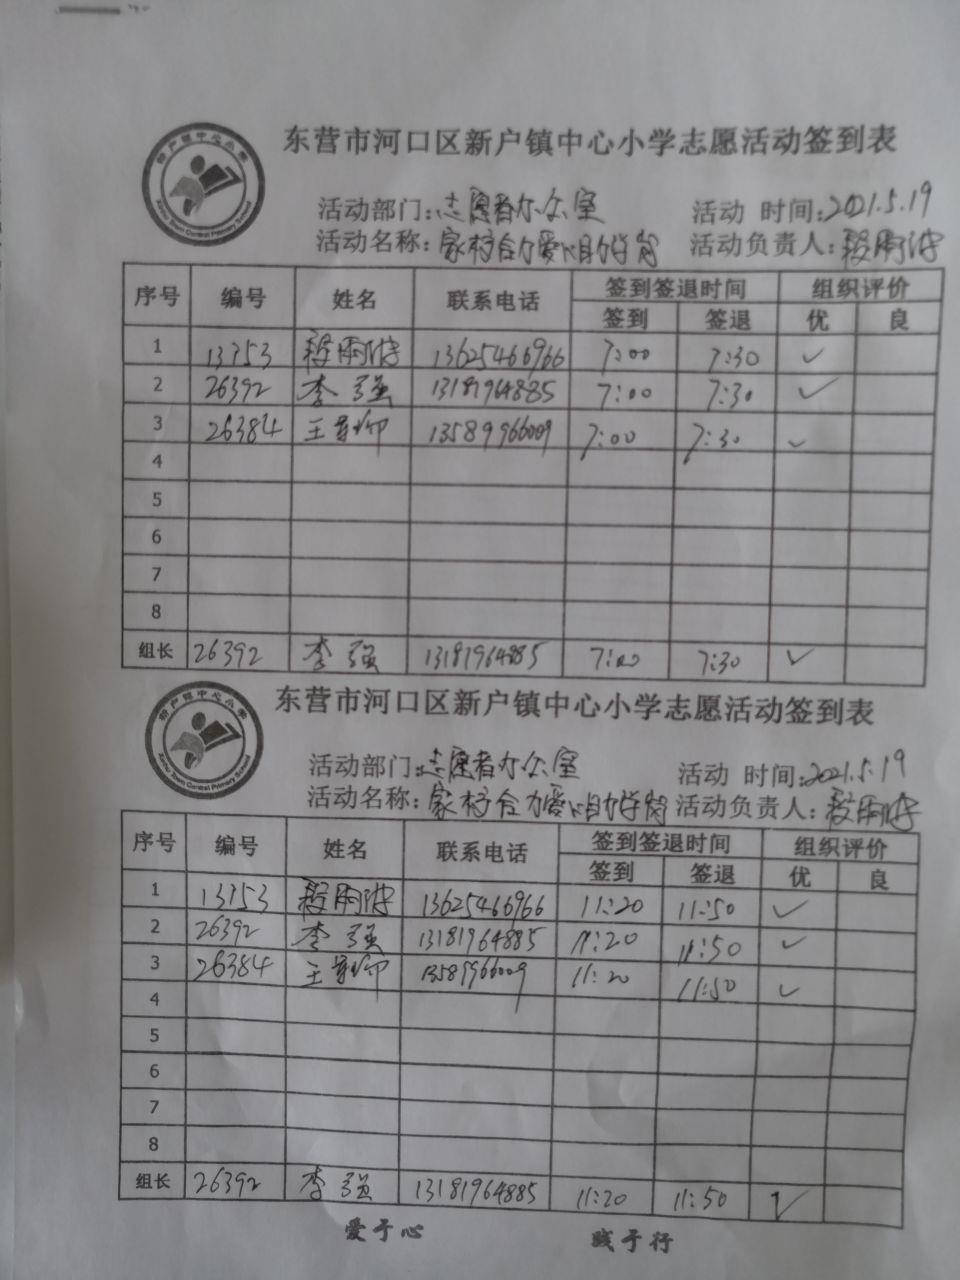 东营市河口区新户镇中心小学志愿活动签到表
新户镇中心小学
Xinhu Town Central Primary School
活动部门:志愿者办公室 活动 时间:2021.5.19
活动名称:家校合力爱心助学岗 活动负责人:
序号 编号 姓名 联系电话 签到签退时间 组织评价
签到 签退 优 良
1 13753 13625466966 7:00 7:30 ✓
2 26392 李强 13181964885 7:00 7:30 ✓
3 26384 王 13589966009 7:00 7:30 ✓
4
5
6
7
8
组长 26392 李强 13181964885 7:00 7:30 ✓
东营市河口区新户镇中心小学志愿活动签到表
新户镇中心小学
Xinhu Town Central Primary School
活动部门:志愿者办公室 活动 时间:2021.5.19
活动名称:家校合力爱心助学岗 活动负责人:
序号 编号 姓名 联系电话 签到签退时间 组织评价
签到 签退 优 良
1 13753 13625466966 11:20 11:50 ✓
2 26392 李强 13181964885 11:20 11:50 ✓
3 26384 王 13589966009 11:20 11:50 ✓
4
5
6
7
8
组长 26392 李强 13181964885 11:20 11:50 ✓
爱于心 践于行